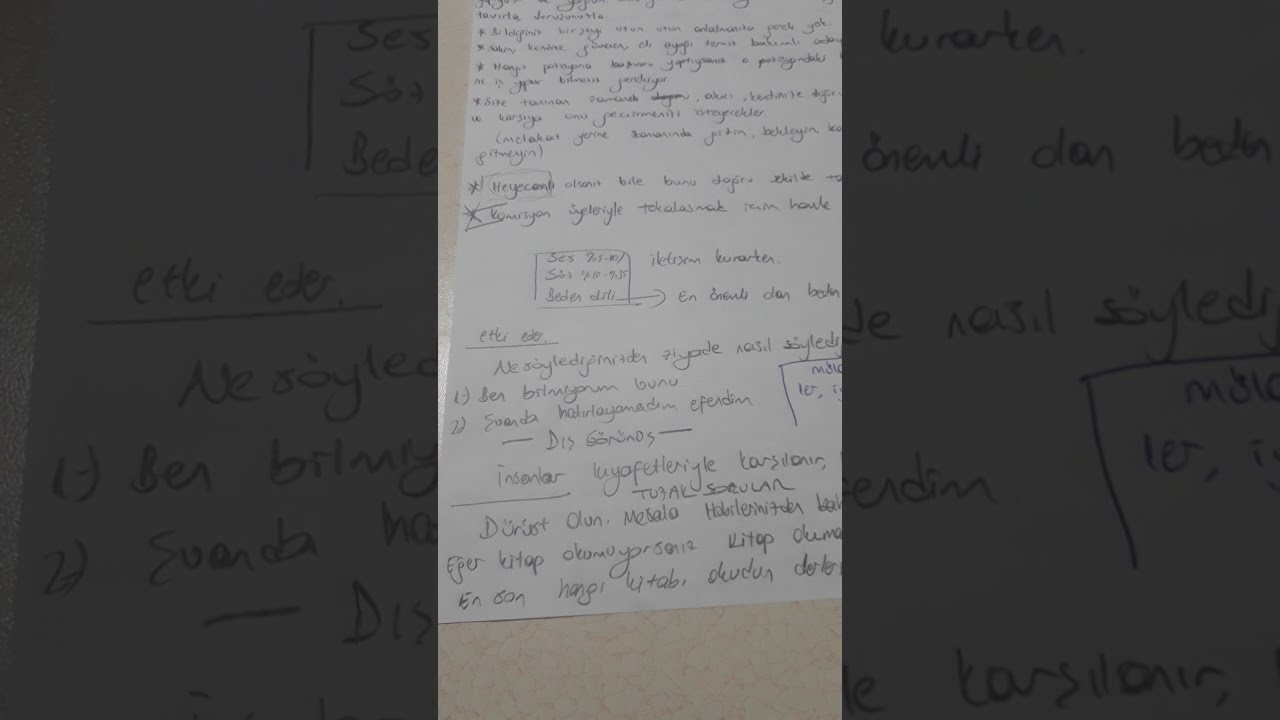 tavırla duruşunuzla
* Bildiğiniz bir şeyi uzun uzun anlatmanıza gerek yok.
* Sakin, kendine güvenen, eli ayağı temiz bakımlı
* Hangi pozisyona başvuru yaptıysanız o pozisyondaki
ne iş yapar bilmeniz gerekiyor.
* Size tanınan zamanda, akıcı, kendinize
ve karşıya onu geçirmenizi isteyecekler.
(mülakat yerine zamanında gidin, bekleyin
gitmeyin)
* Heyecanlı olsanız bile bunu doğru şekilde
* Komisyon üyeleriyle tokalaşmak için hamle
Ses %5-10 iletişim kurarken.
Söz %10-%35
Beden dili → En önemli olan beden
etki eder.
Ne söylediğinizden ziyade nasıl
1-) Ben bilmiyorum bunu.
2) Şuanda hatırlayamadım efendim
— Dış Görünüş —
İnsanlar kıyafetleriyle karşılanır,
TUZAK SORULAR
Dürüst Olun. Mesela Hobilerinizden
Eğer kitap okumuyorsanız kitap
En son hangi kitabı okudun